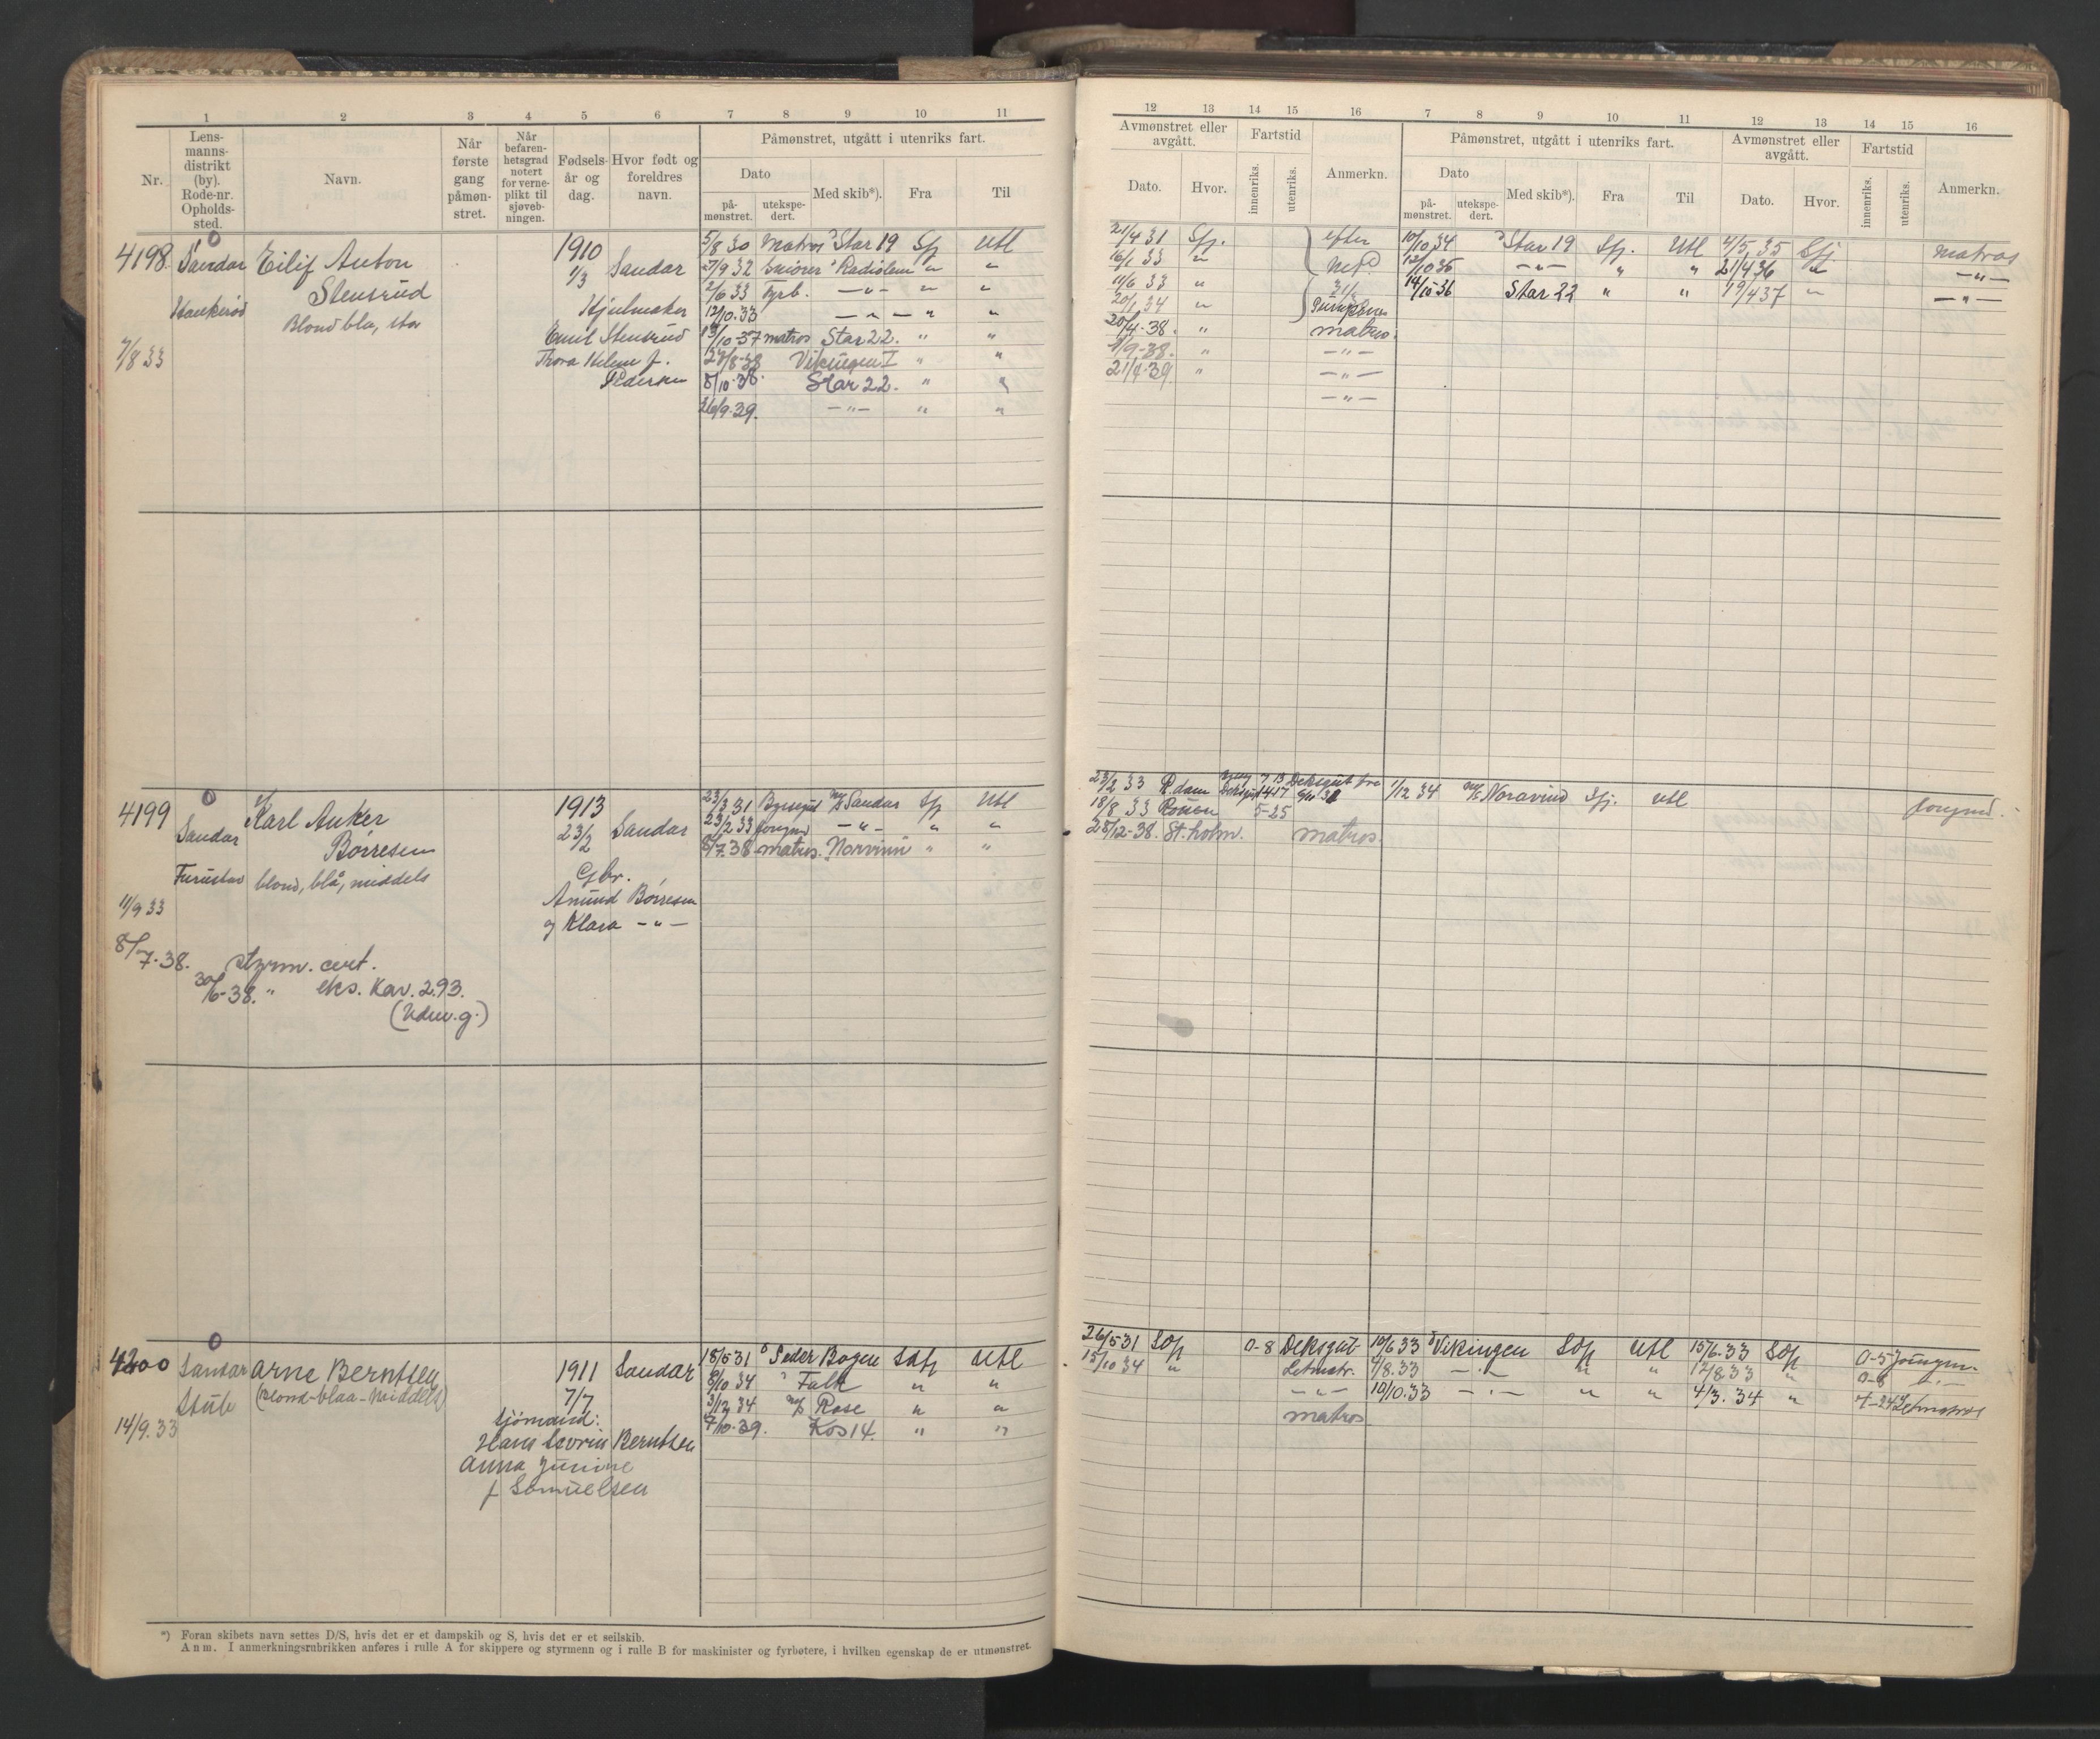 1 2 3 4 5 6 7 8 9 10 11
Nr.
Lens-
manns-
distrikt
(by).
Rode-nr.
Opholds-
sted.
Navn.
Når
første
gang
påmøn-
stret.
Når
befaren-
hetsgrad
notert
for verne-
plikt til
sjøveb-
ningen.
Fødsels-
år og
dag.
Hvor født og
foreldres
navn.
Påmønstret, utgått i utenriks fart.
Dato
på-
mønstret.
utekspe-
dert.
Med skib*).
Fra
Til
4198 Sandar Eilif Anton 1910 Sandar 5/8 30 Matros Star 19 Sfj Utl
Stensrud 1/3 27/9 32 Radiolem " "
Haukerød Blond bla, stor Hjulmaker 2/6 33 Fyrb. —"— " "
12/10.33 —"— " "
7/8 33 Emil Stensrud 13/10-37 matros Star 22. " "
Thora Helene f. 27/8-38 Vikingen I " "
Pedersen 8/10-38. Star 22. " "
26/9-39. —"— " "
4199 Karl Anker 1913 23/3 31 Sandar Sfj Utl
Sandar Børresen 23/2 Sandar 23/2 33 Jongmd —"— " "
8/7.38 matros. Norvinn " "
Furustad blond, blå, middels Gbr.
11/9 33 Amund Børresen
og Klara —"—
8/7-38. styrm. cert.
30/6-38. " eks. Kav. 293.
4200 Sandar Arne Berntsen 1911 Sandar 18/5 31 Peder Bogen Utl
Stub (Blond-blaa-Middels) 7/7 8/10 34 Falk " "
Sjömand: 3/12 34 M/S Rose " "
14/9.33 Hans Severin Berntsen 7/10-39. Kos 14. " "
Anna Junine
f Samuelsen
*) Foran skibets navn settes D/S, hvis det er et dampskib og S, hvis det er et seilskib.
Anm. I anmerkningsrubrikken anføres i rulle A for skippere og styrmenn og i rulle B for maskinister og fyrbøtere, i hvilken egenskap de er utmønstret.
12 13 14 15 16 7 8 9 10 11 12 13 14 15 16
Avmønstret eller
avgått.
Dato.
Hvor.
Fartstid
innenriks.
utenriks.
Anmerkn.
Påmønstret, utgått i utenriks fart.
Dato
på-
mønstret.
utekspe-
dert.
Med skib*).
Fra
Til
Avmønstret eller
avgått.
Dato.
Hvor.
Fartstid
innenriks.
utenriks.
Anmerkn.
21/4 31 Sfj. efter 10/10 34 Star 19 Sfj. Utl 4/5 35 Sfj. Matros
16/1 33 " 12/10 35 —"— " " 21/4 36 " —"—
11/6 33 " 14/10-36 Star 22 " " 19/4 37 " —"—
20/1 34 "
20/4-38. " matros.
9/9-38. " —"—
21/4-39. " —"—
—"—
23/2 33 R.dam 1/12 34 Noravind Sfj. Utl Jongmd.
18/8 33 Rouen 5-25
28/12-38. St.holm. matros.
26/5 31 0-8 Deksgut 10/6 33 Vikingen Utl 15/6.33 0-5 Joungm.
15/10 34 " Letmatr. 4/8.33 —"— " " 12/8 33 " 0-8 —"—
—"— 10/10.33 —"— " " 4/3.34 " Letmatros
matros